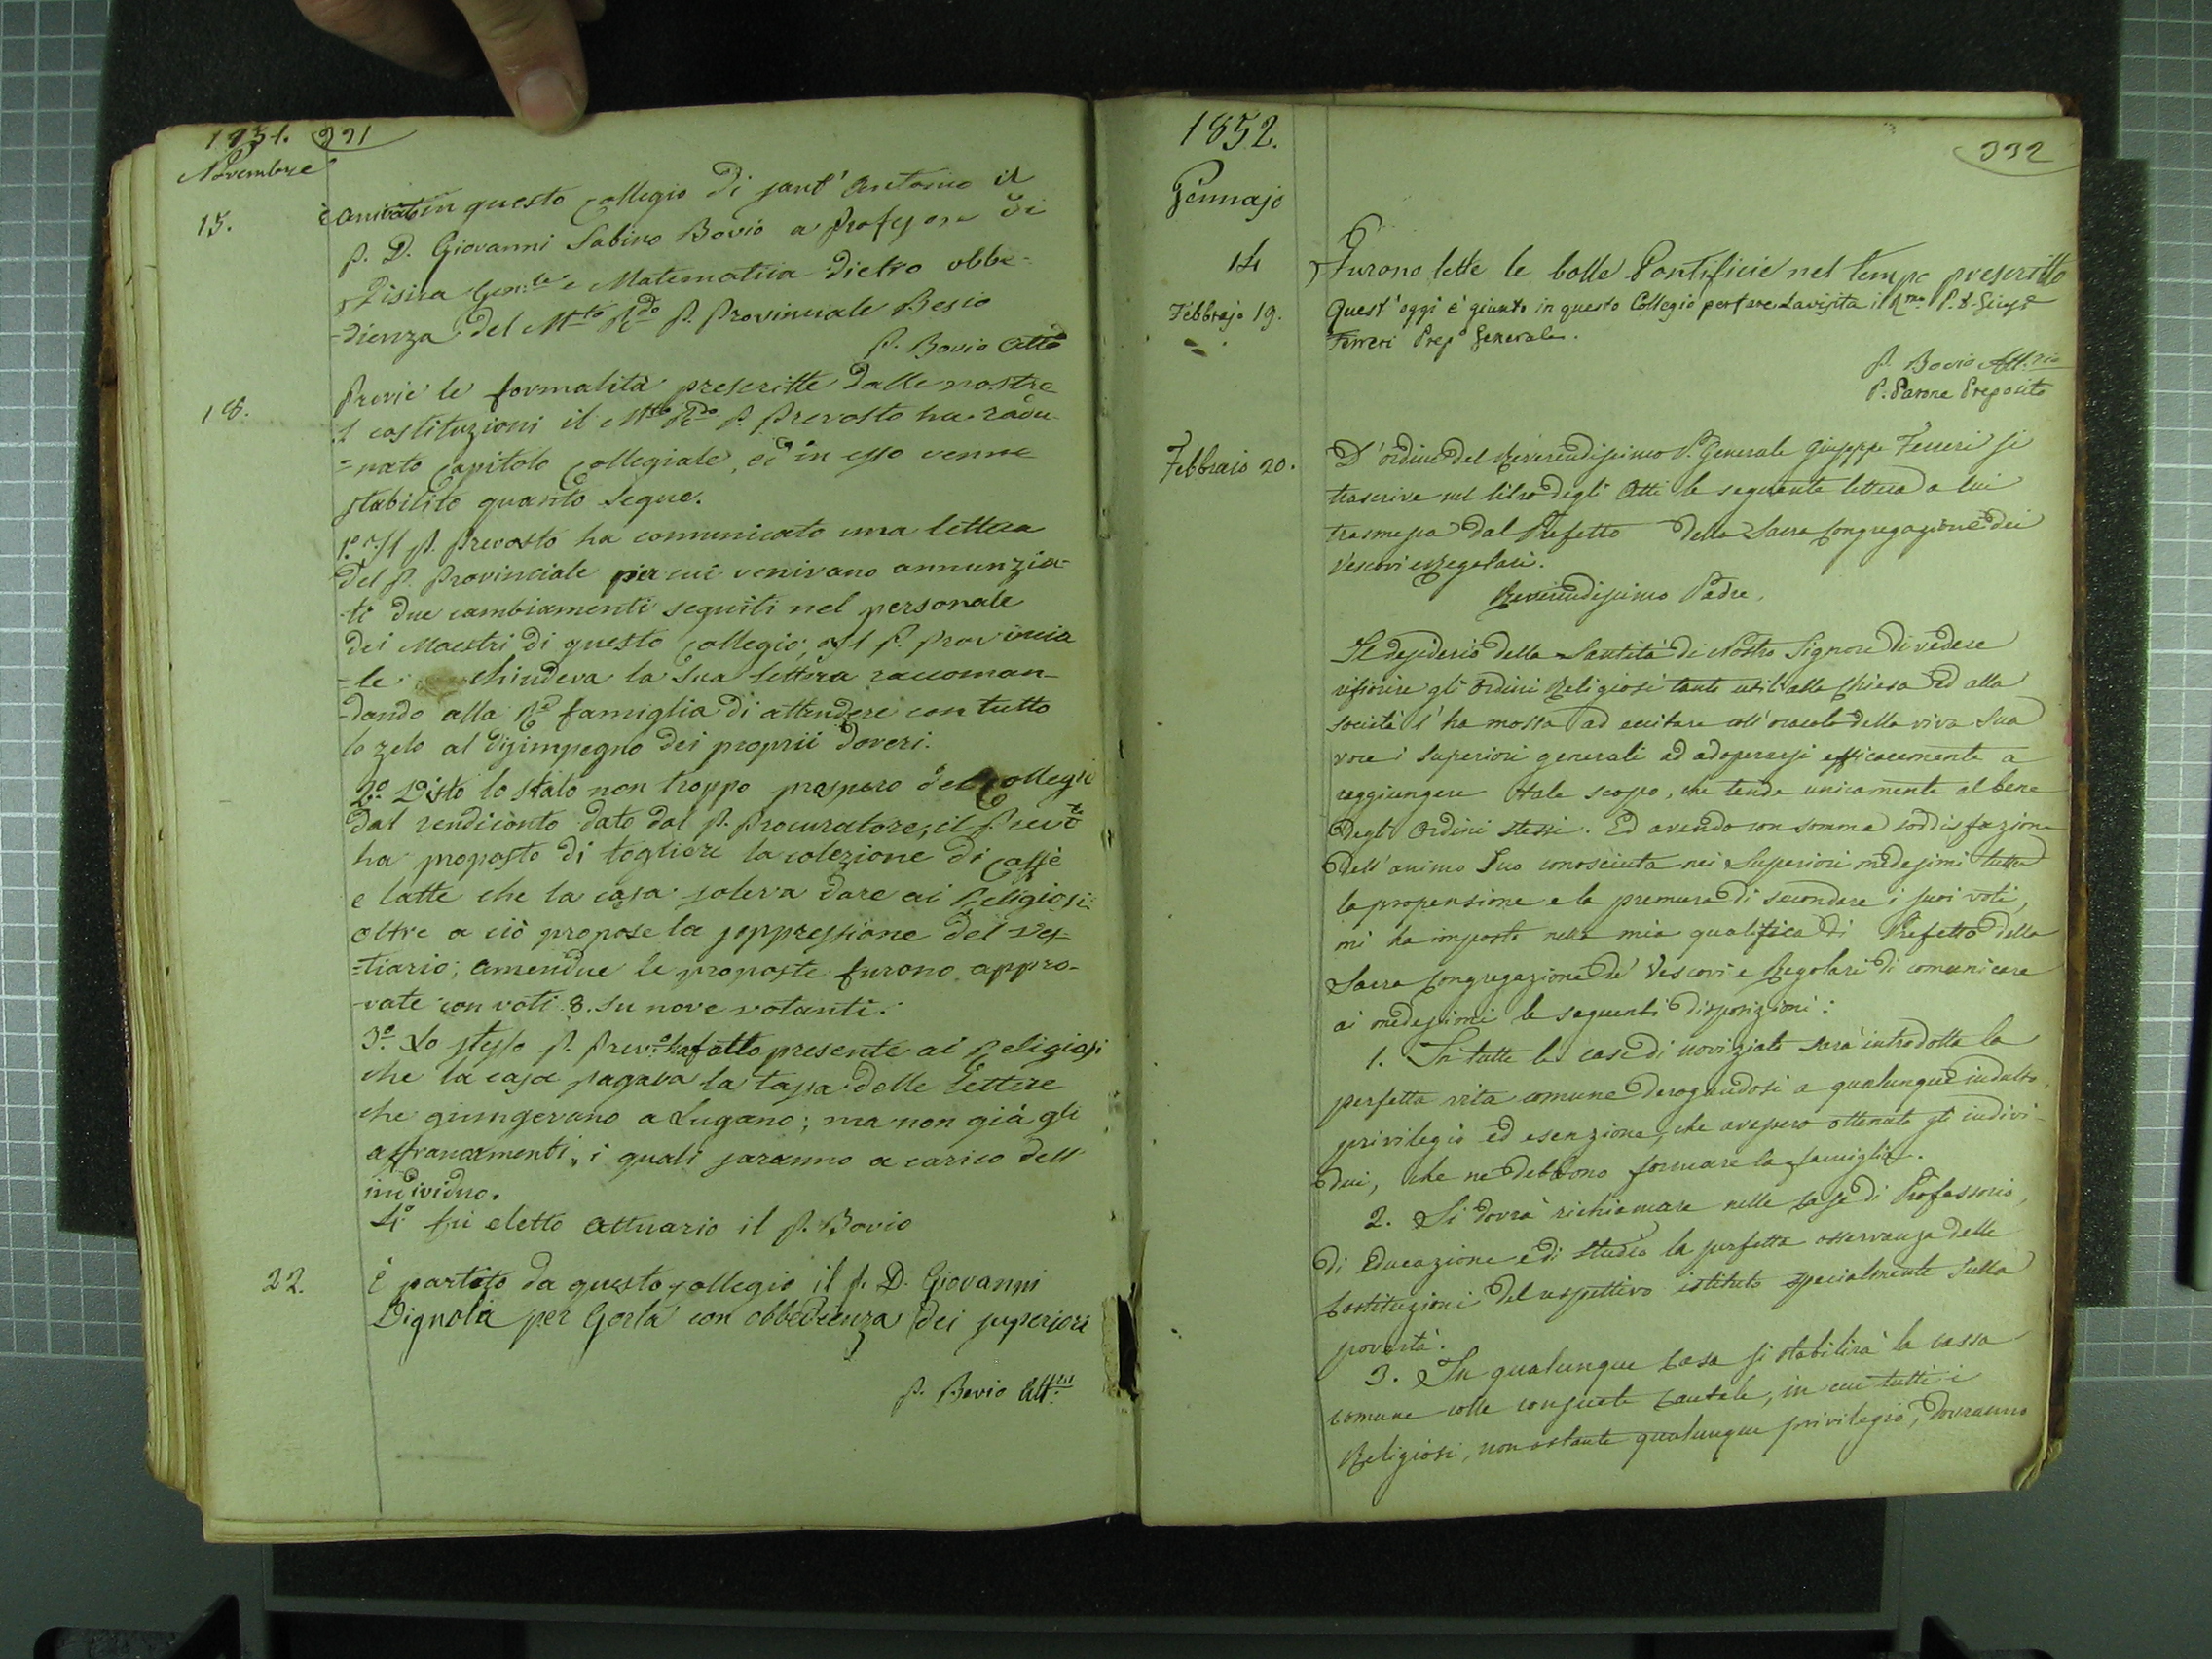 1851. 331
Novembre
15. è arrivato in questo Collegio di sant' Antonio il
P. D. Giovanni Sabino Bovio a Professore di
Fisica Gen.le e Matematica dietro obbe-
-dienza del M.to R.do P. Provinciale Besio
P. Bovio Att.o
18. Previe le formalità prescritte dalle nostre
costituzioni il M.to R.do P. Prevosto ha radu-
=nato Capitolo Collegiale, ed in esso venne
stabilito quanto segue.
1.o Il P. Prevosto ha comunicato una lettera
del P. Provinciale per cui venivano annunzia-
-ti due cambiamenti seguiti nel personale
dei Maestri di questo Collegio; il P. Provincia
=le chiudeva la sua lettera raccoman-
-dando alla R.a famiglia di attendere con tutto
lo zelo al disimpegno dei proprii doveri.
2.o Visto lo stato non troppo prospero del Collegio
dal rendiconto dato dal P. Procuratore, il P. Prev.to
ha proposto di togliere la colezione di Caffè
e latte che la casa soleva dare ai Religiosi:
oltre a ciò propose la soppressione del ves-
=tiario; amendue le proposte furono appro-
-vate con voti 8. su nove votanti.
3.o Lo stesso P. Prev.o ha fatto presente ai Religiosi
che la casa pagava la tassa delle lettere
che giungevano a Lugano; ma non già gli
affrancamenti, i quali saranno a carico dell'
individuo.
4.o fu eletto Attuario il P. Bovio
22. È partito da questo Collegio il P. D. Giovanni
Vignola per Gorla con obbedienza dei superiori
P. Bovio Att.rio
1852. 332
Gennajo
14 Furono lette le bolle Pontificie nel tempo prescritto
Febbrajo 19. Quest' oggi è giunto in questo Collegio per fare la visita il R.mo P. D. Gius.e
Ferreri Prep.o Generale.
P. Bovio Att.rio
P. Parone Preposito
Febbraio 20. D' ordine del Reverendissimo P. Generale Giuseppe Ferreri si
trascrive nel libro degli Atti la seguente lettera a lui
trasmessa dal Prefetto della Sacra Congregazione dei
Vescovi e Regolari.
Reverendissimo Padre,
Il desiderio della Santità di Nostro Signore di vedere
rifiorire gli Ordini Religiosi tanto utili alla Chiesa ed alla
società l' ha mossa ad eccitare coll' oracolo della viva sua
voce i Superiori generali ad adoperarsi efficacemente a
raggiungere tale scopo, che tende unicamente al bene
degli Ordini stessi. Ed avendo con somma soddisfazione
dell' animo Suo conosciuta nei Superiori medesimi tutta
la propensione e la premura di secondare i suoi voti,
mi ha imposto nella mia qualifica di Prefetto della
Sacra Congregazione de' Vescovi e Regolari di comunicare
ai medesimi le seguenti disposizioni:
1. In tutte le case di noviziato sarà introdotta la
perfetta vita comune derogandosi a qualunque indulto,
privilegio ed esenzione, che avessero ottenuto gli indivi-
dui, che ne debbono formare la famiglia.
2. Si dovrà richiamare nelle case di Professorio,
di Educazione e di studio la perfetta osservanza delle
Costituzioni del rispettivo istituto specialmente sulla
povertà.
3. In qualunque Casa si stabilirà la cassa
comune colle consuete cautele, in cui tutti i
Religiosi, non ostante qualunque privilegio, dovranno